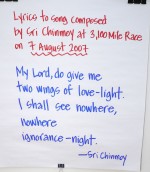 Lyrics to song composed
by Sri Chinmoy at 3,100 Mile Race
on 7 August 2007
My Lord, do give me
two wings of love-light.
I shall see nowhere,
nowhere
ignorance-night.
—Sri Chinmoy